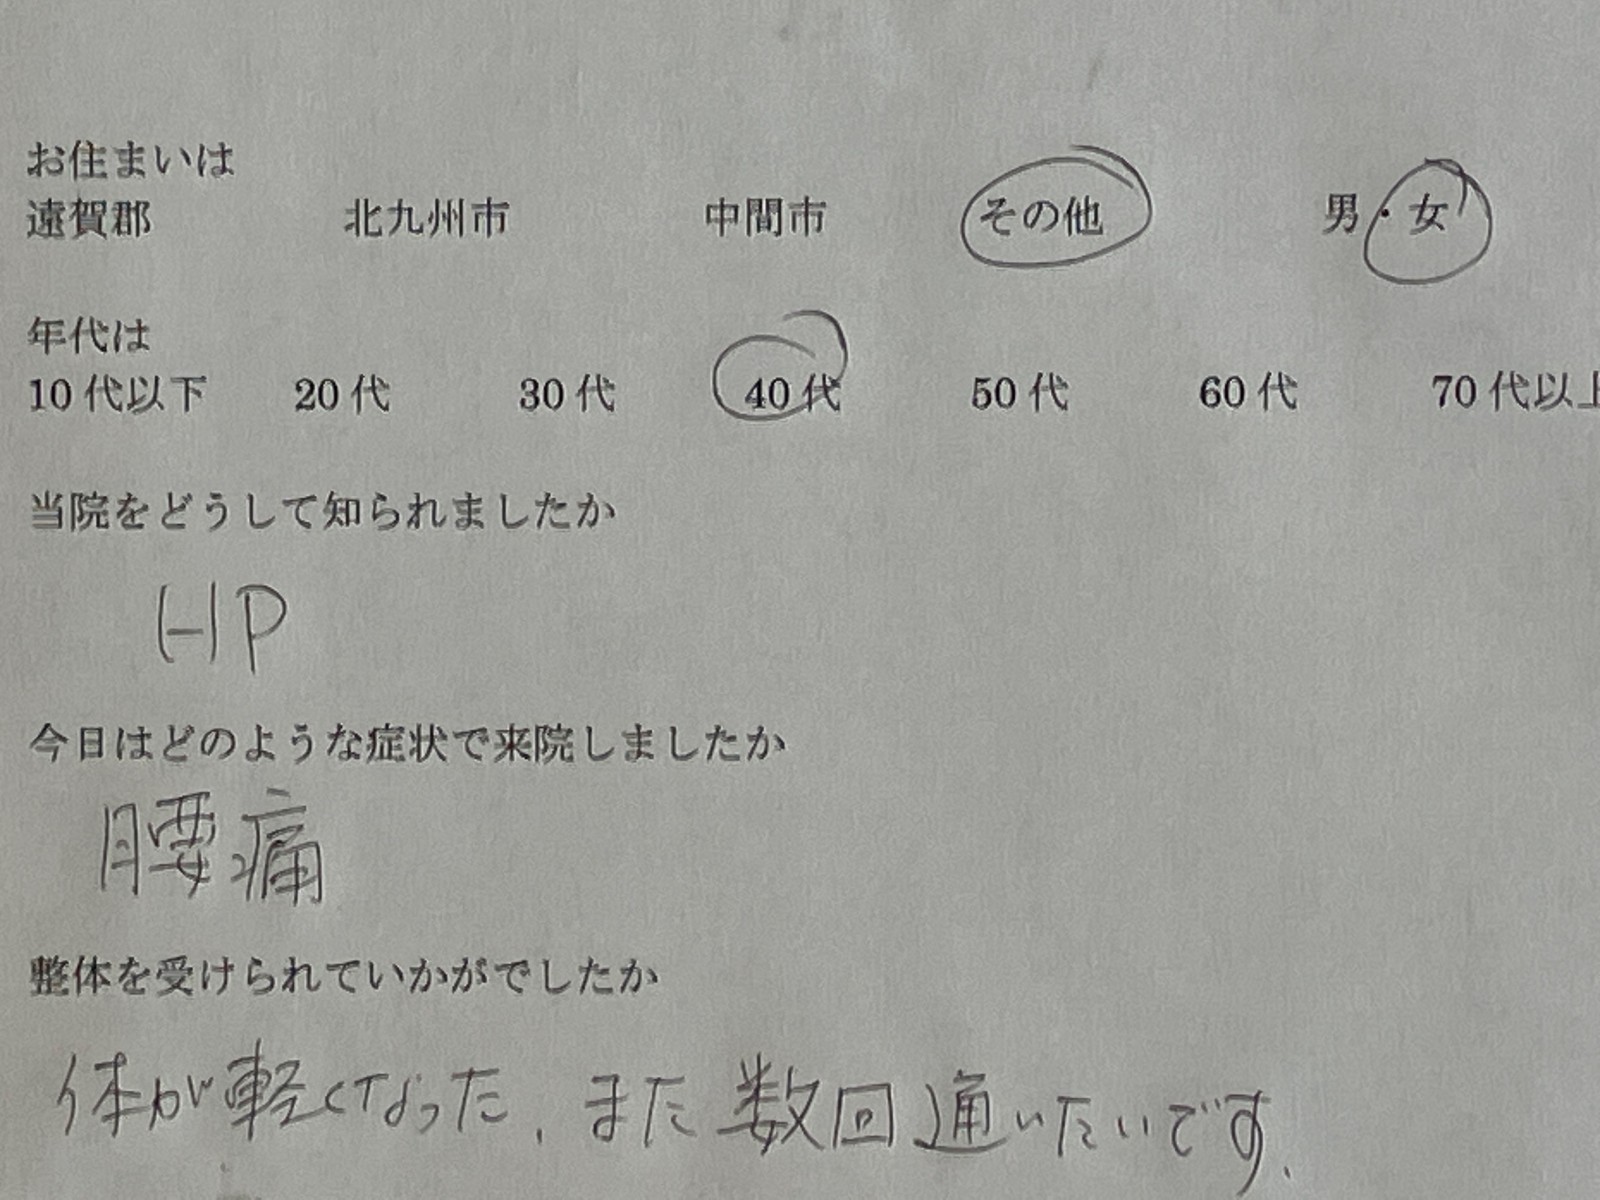 お住まいは
遠賀郡 北九州市 中間市 その他 男・女
年代は
10代以下 20代 30代 40代 50代 60代 70代以上
当院をどうして知られましたか
HP
今日はどのような症状で来院しましたか
腰痛
整体を受けられていかがでしたか
体が軽くなった、また数回通いたいです.